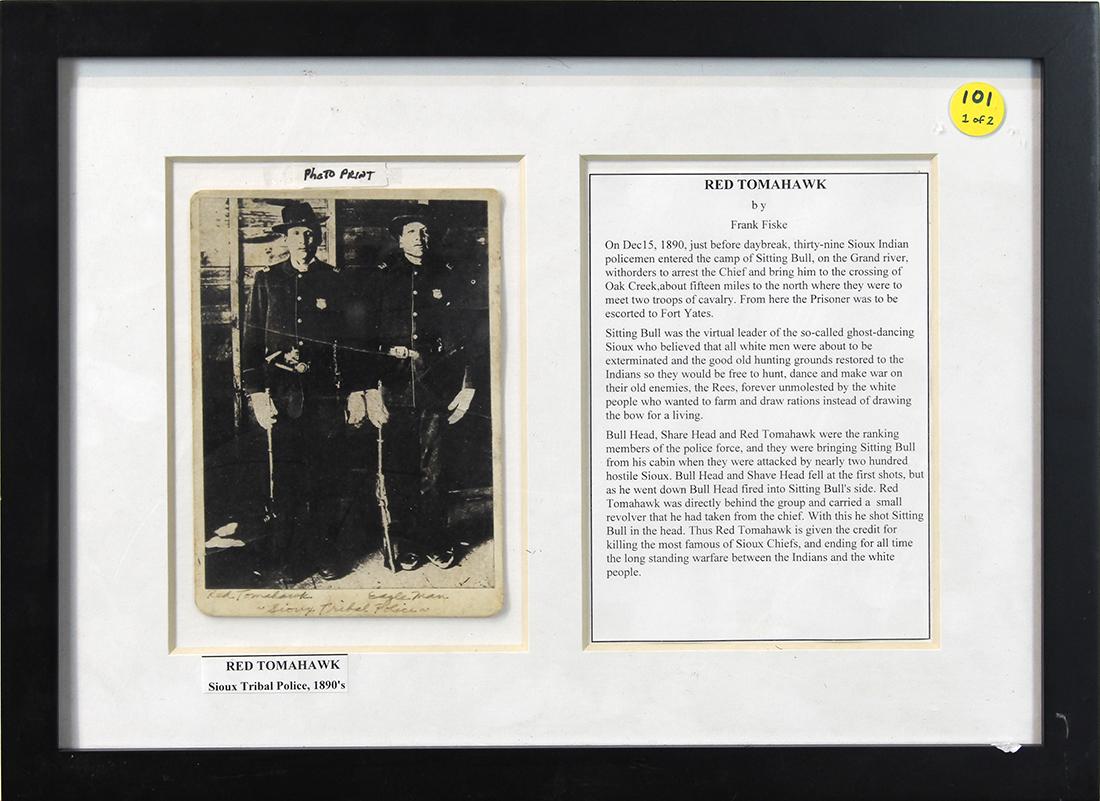 101
1 of 2
PHOTO PRINT
Red Tomahawk Eagle Man
"Sioux Tribal Police"
RED TOMAHAWK
Sioux Tribal Police, 1890's
RED TOMAHAWK
b y
Frank Fiske
On Dec15, 1890, just before daybreak, thirty-nine Sioux Indian
policemen entered the camp of Sitting Bull, on the Grand river,
withorders to arrest the Chief and bring him to the crossing of
Oak Creek,about fifteen miles to the north where they were to
meet two troops of cavalry. From here the Prisoner was to be
escorted to Fort Yates.
Sitting Bull was the virtual leader of the so-called ghost-dancing
Sioux who believed that all white men were about to be
exterminated and the good old hunting grounds restored to the
Indians so they would be free to hunt, dance and make war on
their old enemies, the Rees, forever unmolested by the white
people who wanted to farm and draw rations instead of drawing
the bow for a living.
Bull Head, Share Head and Red Tomahawk were the ranking
members of the police force, and they were bringing Sitting Bull
from his cabin when they were attacked by nearly two hundred
hostile Sioux. Bull Head and Shave Head fell at the first shots, but
as he went down Bull Head fired into Sitting Bull's side. Red
Tomahawk was directly behind the group and carried a small
revolver that he had taken from the chief. With this he shot Sitting
Bull in the head. Thus Red Tomahawk is given the credit for
killing the most famous of Sioux Chiefs, and ending for all time
the long standing warfare between the Indians and the white
people.